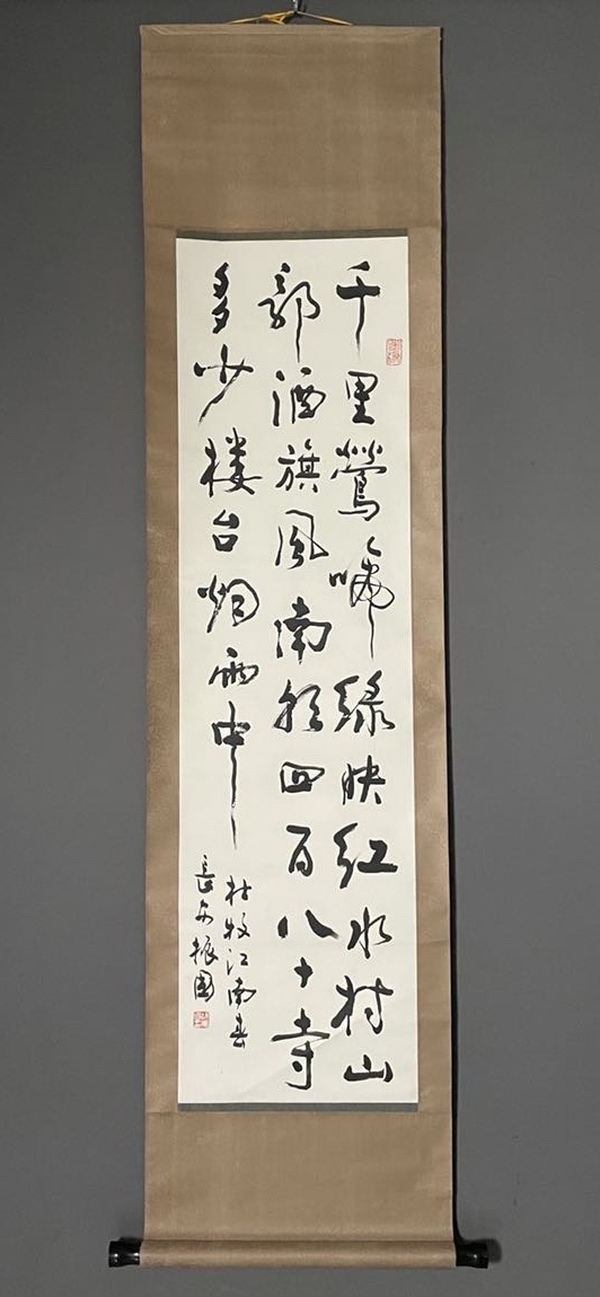 千里鶯啼緑映紅水村山
郭酒旗風南朝四百八十寺
多少楼台烟雨中
杜牧江南春
長安振國